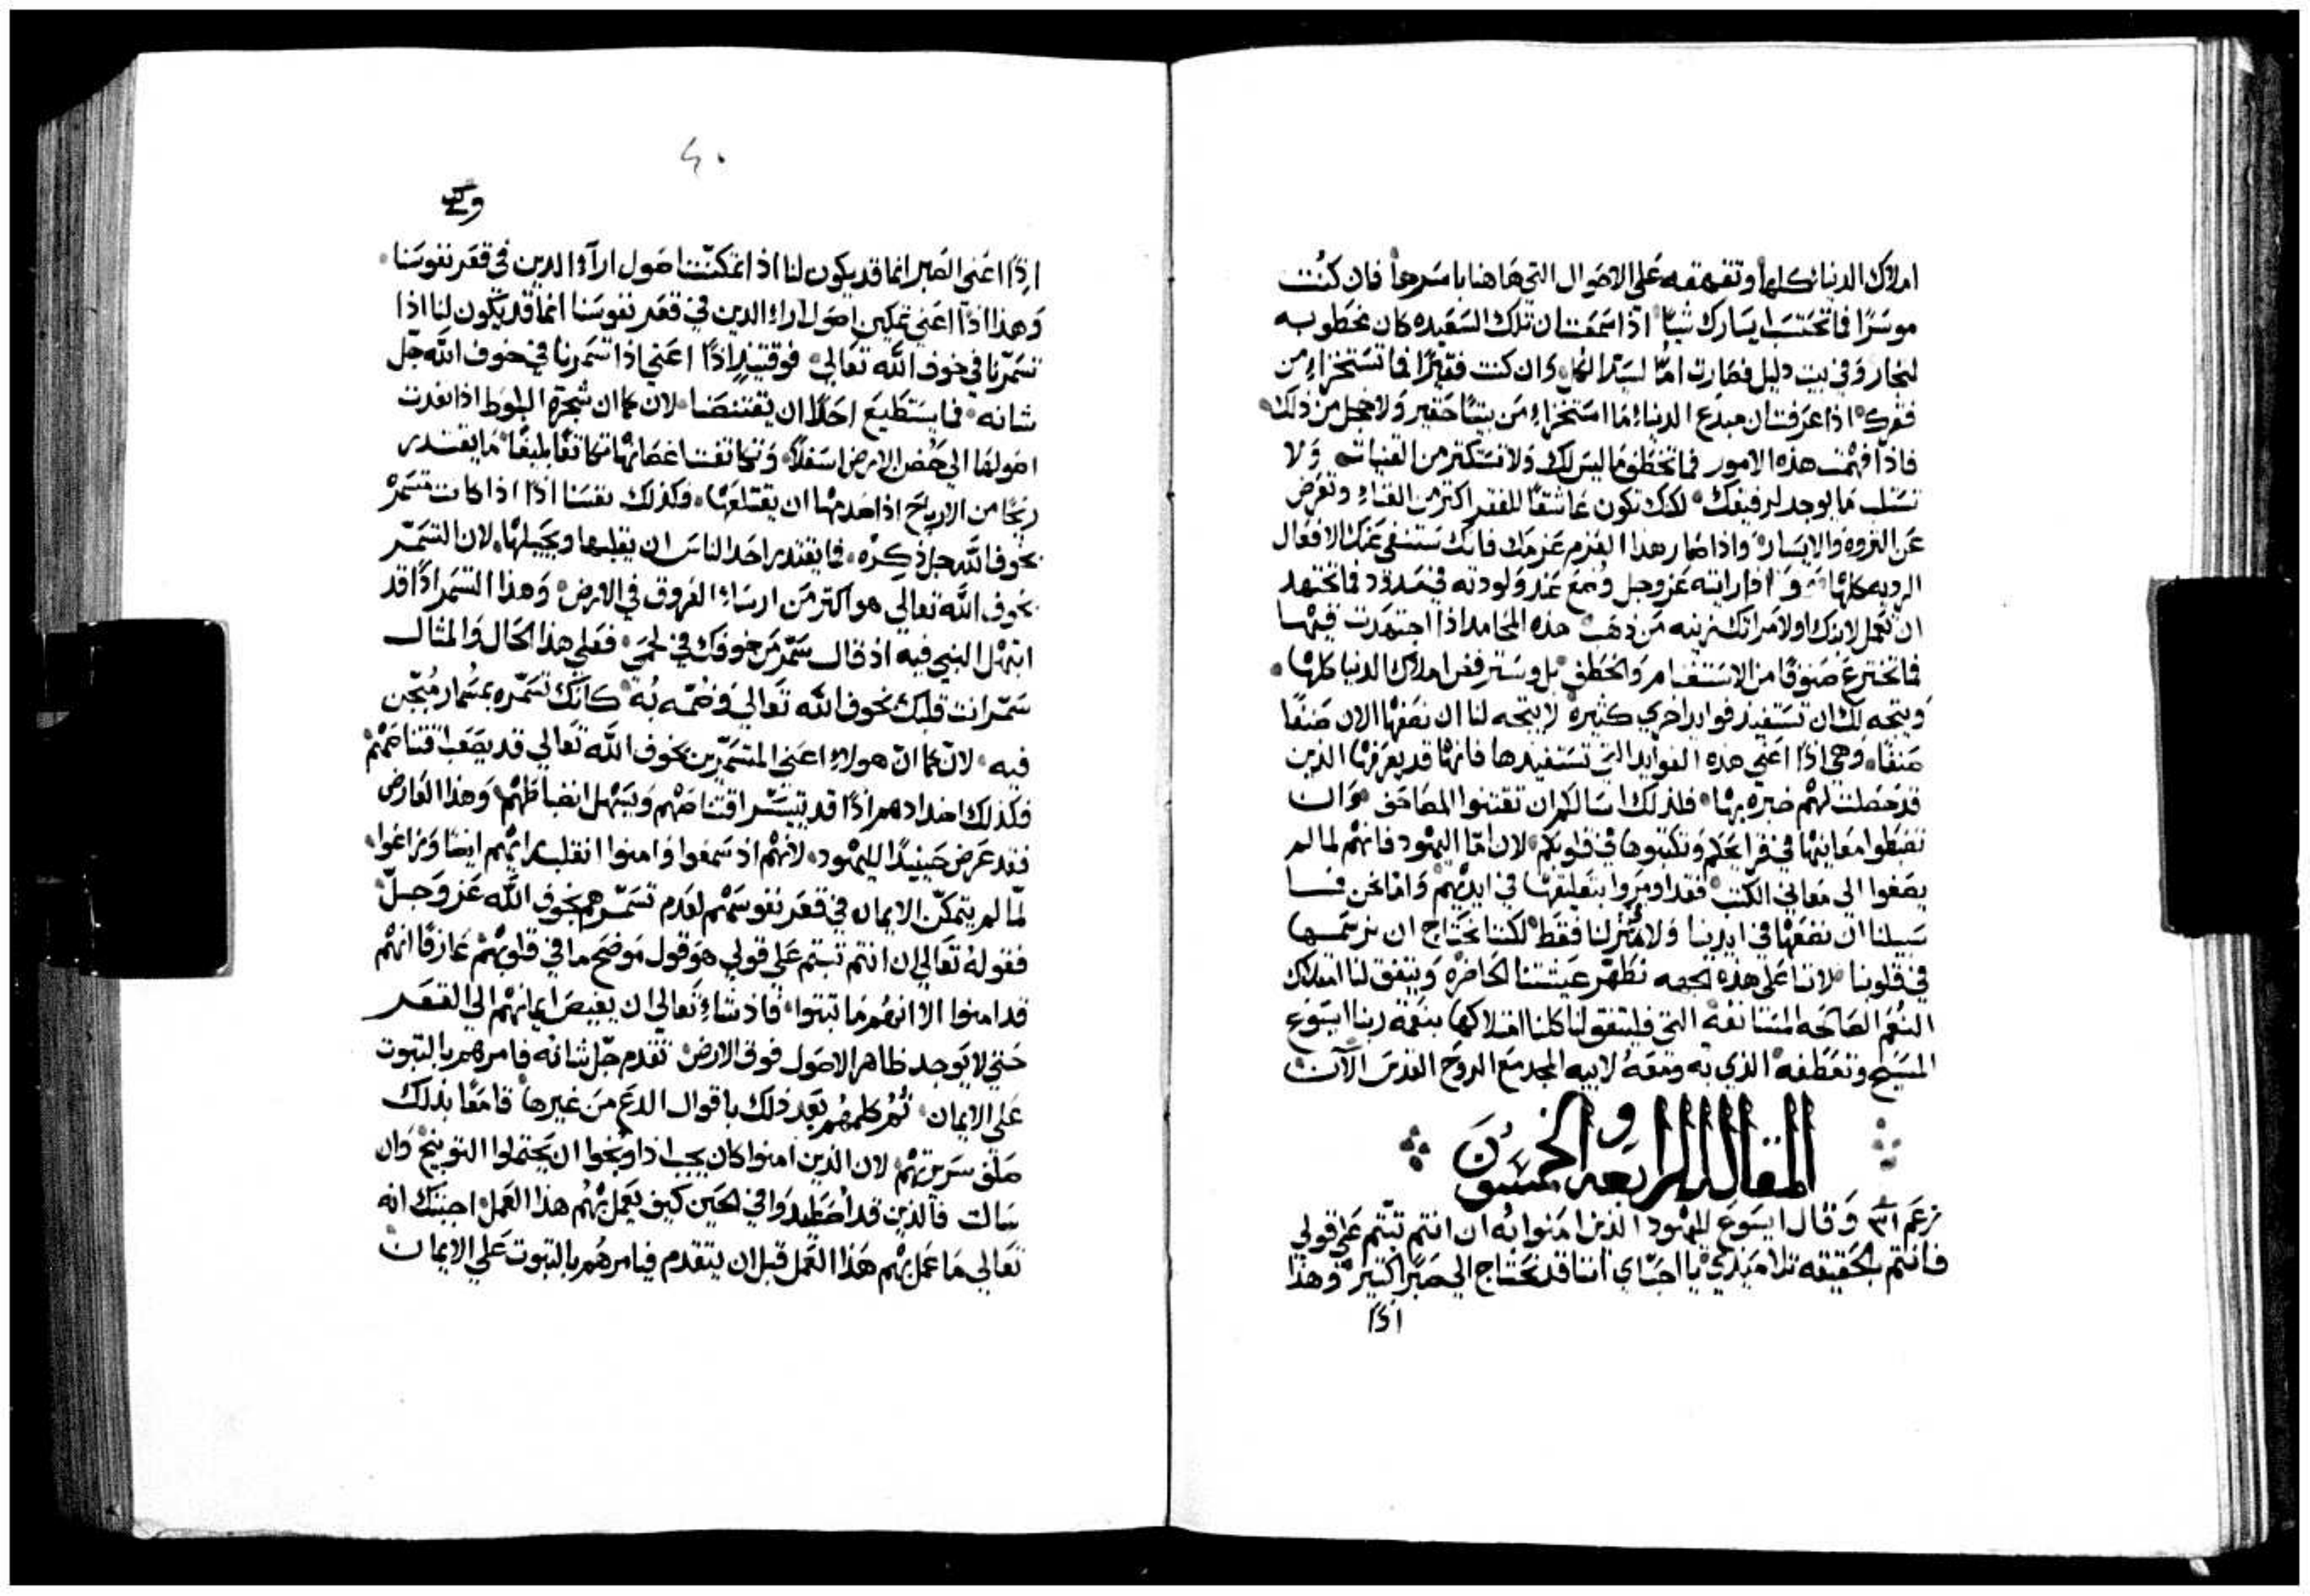 املاك الدنيا كلها وتقهقه على الاحوال التي هاهنا باسرها فان كنت
موسرًا فما تحتسب ايسارك شيًا اذا سمعت ان تلك السعيده كان مخطوبه
لنجار وفي بيت دليل فصارت امًا لسيد الكل وان كنت فقيرًا فما تستخزاء من
فقرك اذا عرفت ان مبدع الدنياء ما استخزاء من بيتًا حقير ولا خجل من ذلك
فاذا فهمت هذه الامور فما تخطف ما ليس لك ولا تستكتر من القنيات ولا
تستلب ما يوجد لرفيقك لكنك تكون عاشقًا للفقر اكتر من الغناء وتعرض
عن التروه والايسار واذا صار هذا العزم عزمك فانك ستنفي عنك الافعال
الرديه كلها وَاذا رايته عز وجل وُضع عند ولودته في مدود فما تجتهد
ان تعمل لابنك او لامراتك زينه من ذهب هذه المحامد اذا اجتهدت فيها
فما تخترع صنوفًا من الاستغنام والخطف بل وسترفض املاك الدنيا كلها
ويتجه لك ان تستفيد فوايد اخري كثيرة لا يتجه لنا ان نصفها الان صنفًا
صنفًا وهي اذًا اعني هذه الفوايد التي تستفيدها فانها قد يعرفها الذين
قد حصلت لهم خبره بها فلذلك اسالكم ان تقتنوا المصاحف وان
تضبطوا معانيها في قرايحكم وتكتبوها في قلوبكم لان امّا اليهود فانهم لما لم
يصغوا الى معاني الكتب فقد اومروا بتعليقها في ايديهم واما نحن فما
سبيلنا ان نضعها في ايدينا ولا منزلنا فقط لكننا نحتاج ان نرسمها
في قلوبنا لاننا على هذه الجهه نطهّر عيشتنا الحاضره ويتفق لنا امتلاك
النعم الصالحه المستانفة التي فليتفق لنا كلنا امتلاكها بنعمة ربنا ايسوع
المسيح وتعطفه الذي به ومعهُ لابيه المجد مع الروح القدس الآن
المقاله الرابعه والخمسون
زعم ٣١ وقال ايسوع لليهود الذين امنوا به ان انتم تبتّم علي قولي
فانتم بالحقيقه تلاميذي يا احبّاي اننا قد نحتاج الى صبرًا كتير وهذا
٤٠
اذًا اعني الصبر انما قد يكون لنا اذا تمكنت اصول ارآء الدين في قعر نفوسنا
وهذا اذًا اعني تمكين اصول اراء الدين في قعر نفوسنا انما قد يكون لنا اذا
تسمّرنا في خوف الله تعالي فوقتيذٍ اذًا اعني اذا تسمرنا في خوف الله جلّ
شانه فما يستطيع احدًا ان يقتنصنا لان كما ان شجرة البلوط اذا نفدت
اصولها الي حضن الارض اسفلاً وتكاتفت اغصانها تكاتفًا بليغًا ما يقتدر
ريحًا من الارياح اذا صدمها ان يقتلعها فكذلك نفسنا اذًا اذا كانت متسمرة
بخوف الله جل ذكره فما يقتدر احد الناس ان يقلبها ويحيلها لان التسمّر
بخوف الله تعالي هو اكتر من ارساء العروق في الارض وهذا التسمر اذًا قد
ابتهل النبي فيه اذ قال سمّر من خوفك في لحمي فعلي هذا الحال والمثال
سمّر انت قلبك بخوف الله تعالي وضمّه به كانك تسمّره بمسمار
فيه لانّ كما انّ هولاء اعني المتسمّرين بخوف الله تعالي قد يصعب اقتناصهم
فكذلك اضدادهم اذًا قد يتيسّر اقتناصهم ويسهل انضباطهم وهذا العارض
فقد عرض حينيذًا لليهود لانهم اذ سمعوا وامنوا انقلب رايهم ايضًا وزاغوا
لمّا لم يتمكّن الايمان في قعر نفوسهم لعدم تسمّرهم بخوف الله عز وجلّ
فقوله تعالي ان انتم تبتم علي قولي هو قول موضح ما في قلوبهم عارفًا انهم
قد امنوا الا انهم ما تبتوا فاذ شاء تعالي ان يغيص ايمانهم الي القعر
حتي لا يوجد ظاهر الاصول فوق الارض تقدم جلّ شانه فامرهم بالتبوت
علي الايمان ثم كلمهم بعد ذلك باقوال الدع من غيرها قامعًا بذلك
صلف سريرتهم لان الذين امنوا كان يجب اذا وبّخوا ان يحتملوا التوبيخ وان
سالت فالذين قد اضطهدوا في الحين كيف يعمل بهم هذا العمل اجبتك انه
تعالي ما عمل بهم هذا العمل قبل ان يتقدم فيامرهم بالتبوت علي الايمان